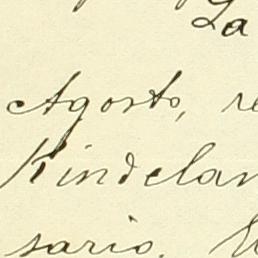 La
Agosto, re
Kindelan
sario.